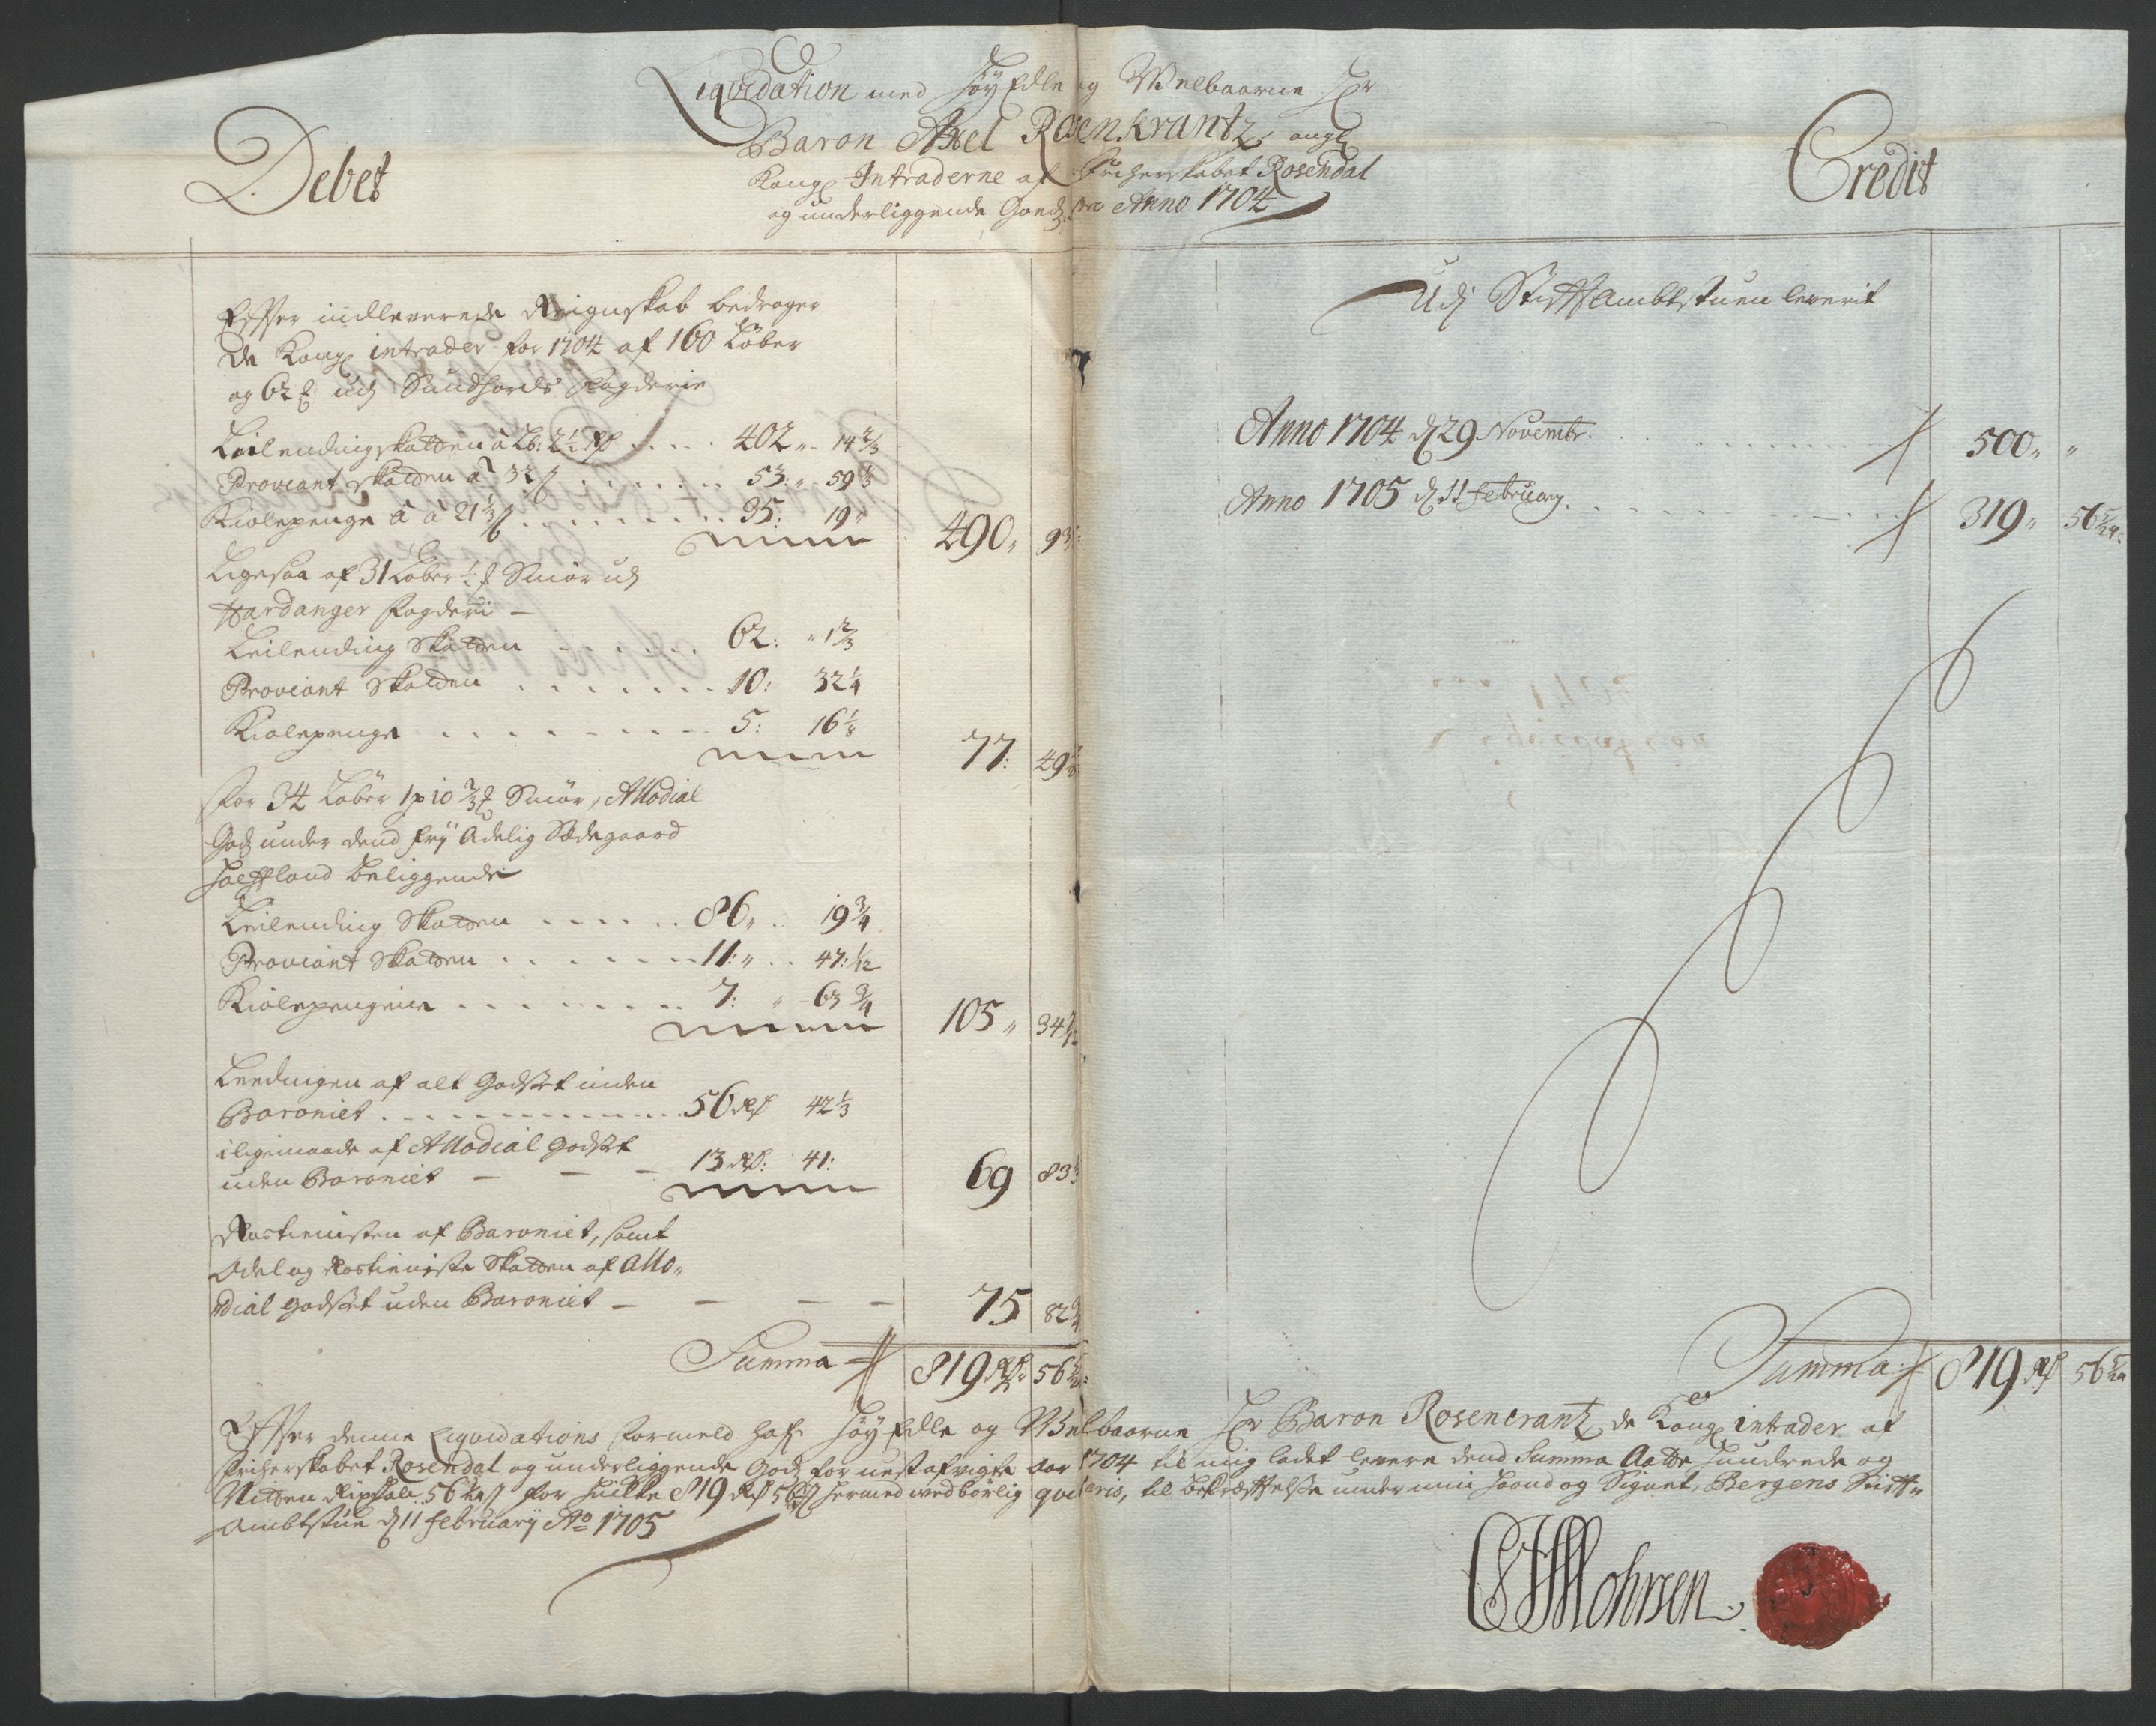 Liqvidation med Høy Edle og Welbaarne Hr
Baron Axel Rosenkrantz, angl
Kongl Intraderne af Friherskabet Rosendal
og underliggende Goeds pro Anno 1704
Debet
Credit
Effter indleverede Reignskab bedrager
de Kongl intrader for 1704 af 160 Løber
og 62 ℔ udj Sundhords fogderie
Leilendingskatten à Lb: 2½ Rd .... 402 „ 14 2/3
Proviant skatten à 32 s ........ 53: „ 59 1/3
Kiølepenge à 21 1/3 s ......... 35: 19 „
490 „ 93
Ligesaa af 31 Løber ½ ℔ Smør udj
Hardanger fogderi –
Leilending Skatten ..... 62: „ 1 2/3
Proviant Skatten ....... 10: 32 1/4
Kiølepenge ........ 5: 16 1/8
77: 49
for 34 Løber 1 p 10 2/3 ℔ Smør, Allodial
Gods under dend fry Adelig Sædegaard
Hatteland beliggende
Leilending Skatten ...... 86 „ .. 19 3/4
Proviant Skatten ....... 11: „ .. 47: 1/12
Kiølepengene ........ 7: „ 63 3/4
105 „ 34 7/12
Leedingen af alt Godset inden
Baroniet ............ 56 Rd 42 1/3
iligemaade af Allodial Godset
uden Baroniet – – – 13 Rd: 41:
69 83 1/3
Rostienisten af Baroniet, samt
Odel og Rostieniste Skatten af Allo„
dial Godset uden Baroniet – – – –
75 82
Summa 819 Rd: 56
Udj Stifft Ambtstuen leverit
Anno 1704 d 29 Novembr. .......... 500 „ „
Anno 1705 d 11 february. ......... 319 „ 56 5/24.
Summa 819 Rd 56 5/24
Effter denne Liqvidations formeld hafr Høy Edle og Welbaarne Hr Baron Rosencrantz de Kongl intrader af
friherskabet Rosendal og underliggende Gods for nest afvigte Aar 1704 til mig ladet levere dend Summa Aatte Hundrede og
Nitten Rixdalr 56 5/24 s for hvilke 819 Rd 56 5/24 s hermed vedbørlig qviteris, til bekræfftelse under min Haand og Signet, Bergens Stifft„
Ambtstue d 11 february Ao 1705